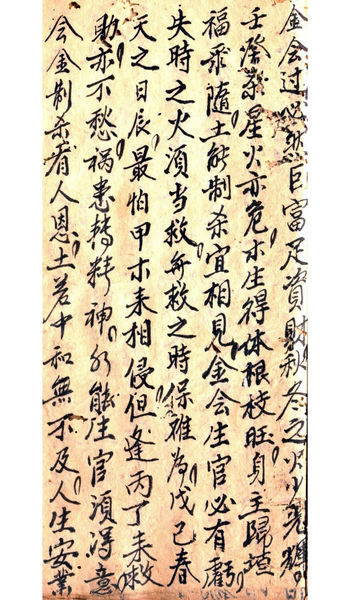 金会过必然巨富足資財秋冬之火少光輝
壬癸煞星火亦危木生得体根枝旺身主歸
福飛隨土能制杀宜相見金会生官必有虧
失時之火須当救無救之時保难為戊己春
天之日辰最怕甲木来相侵但逢丙丁来救
助亦不愁禍患轉精神水能生官須得意
会金制杀看人恩土若中和無不及人生安業